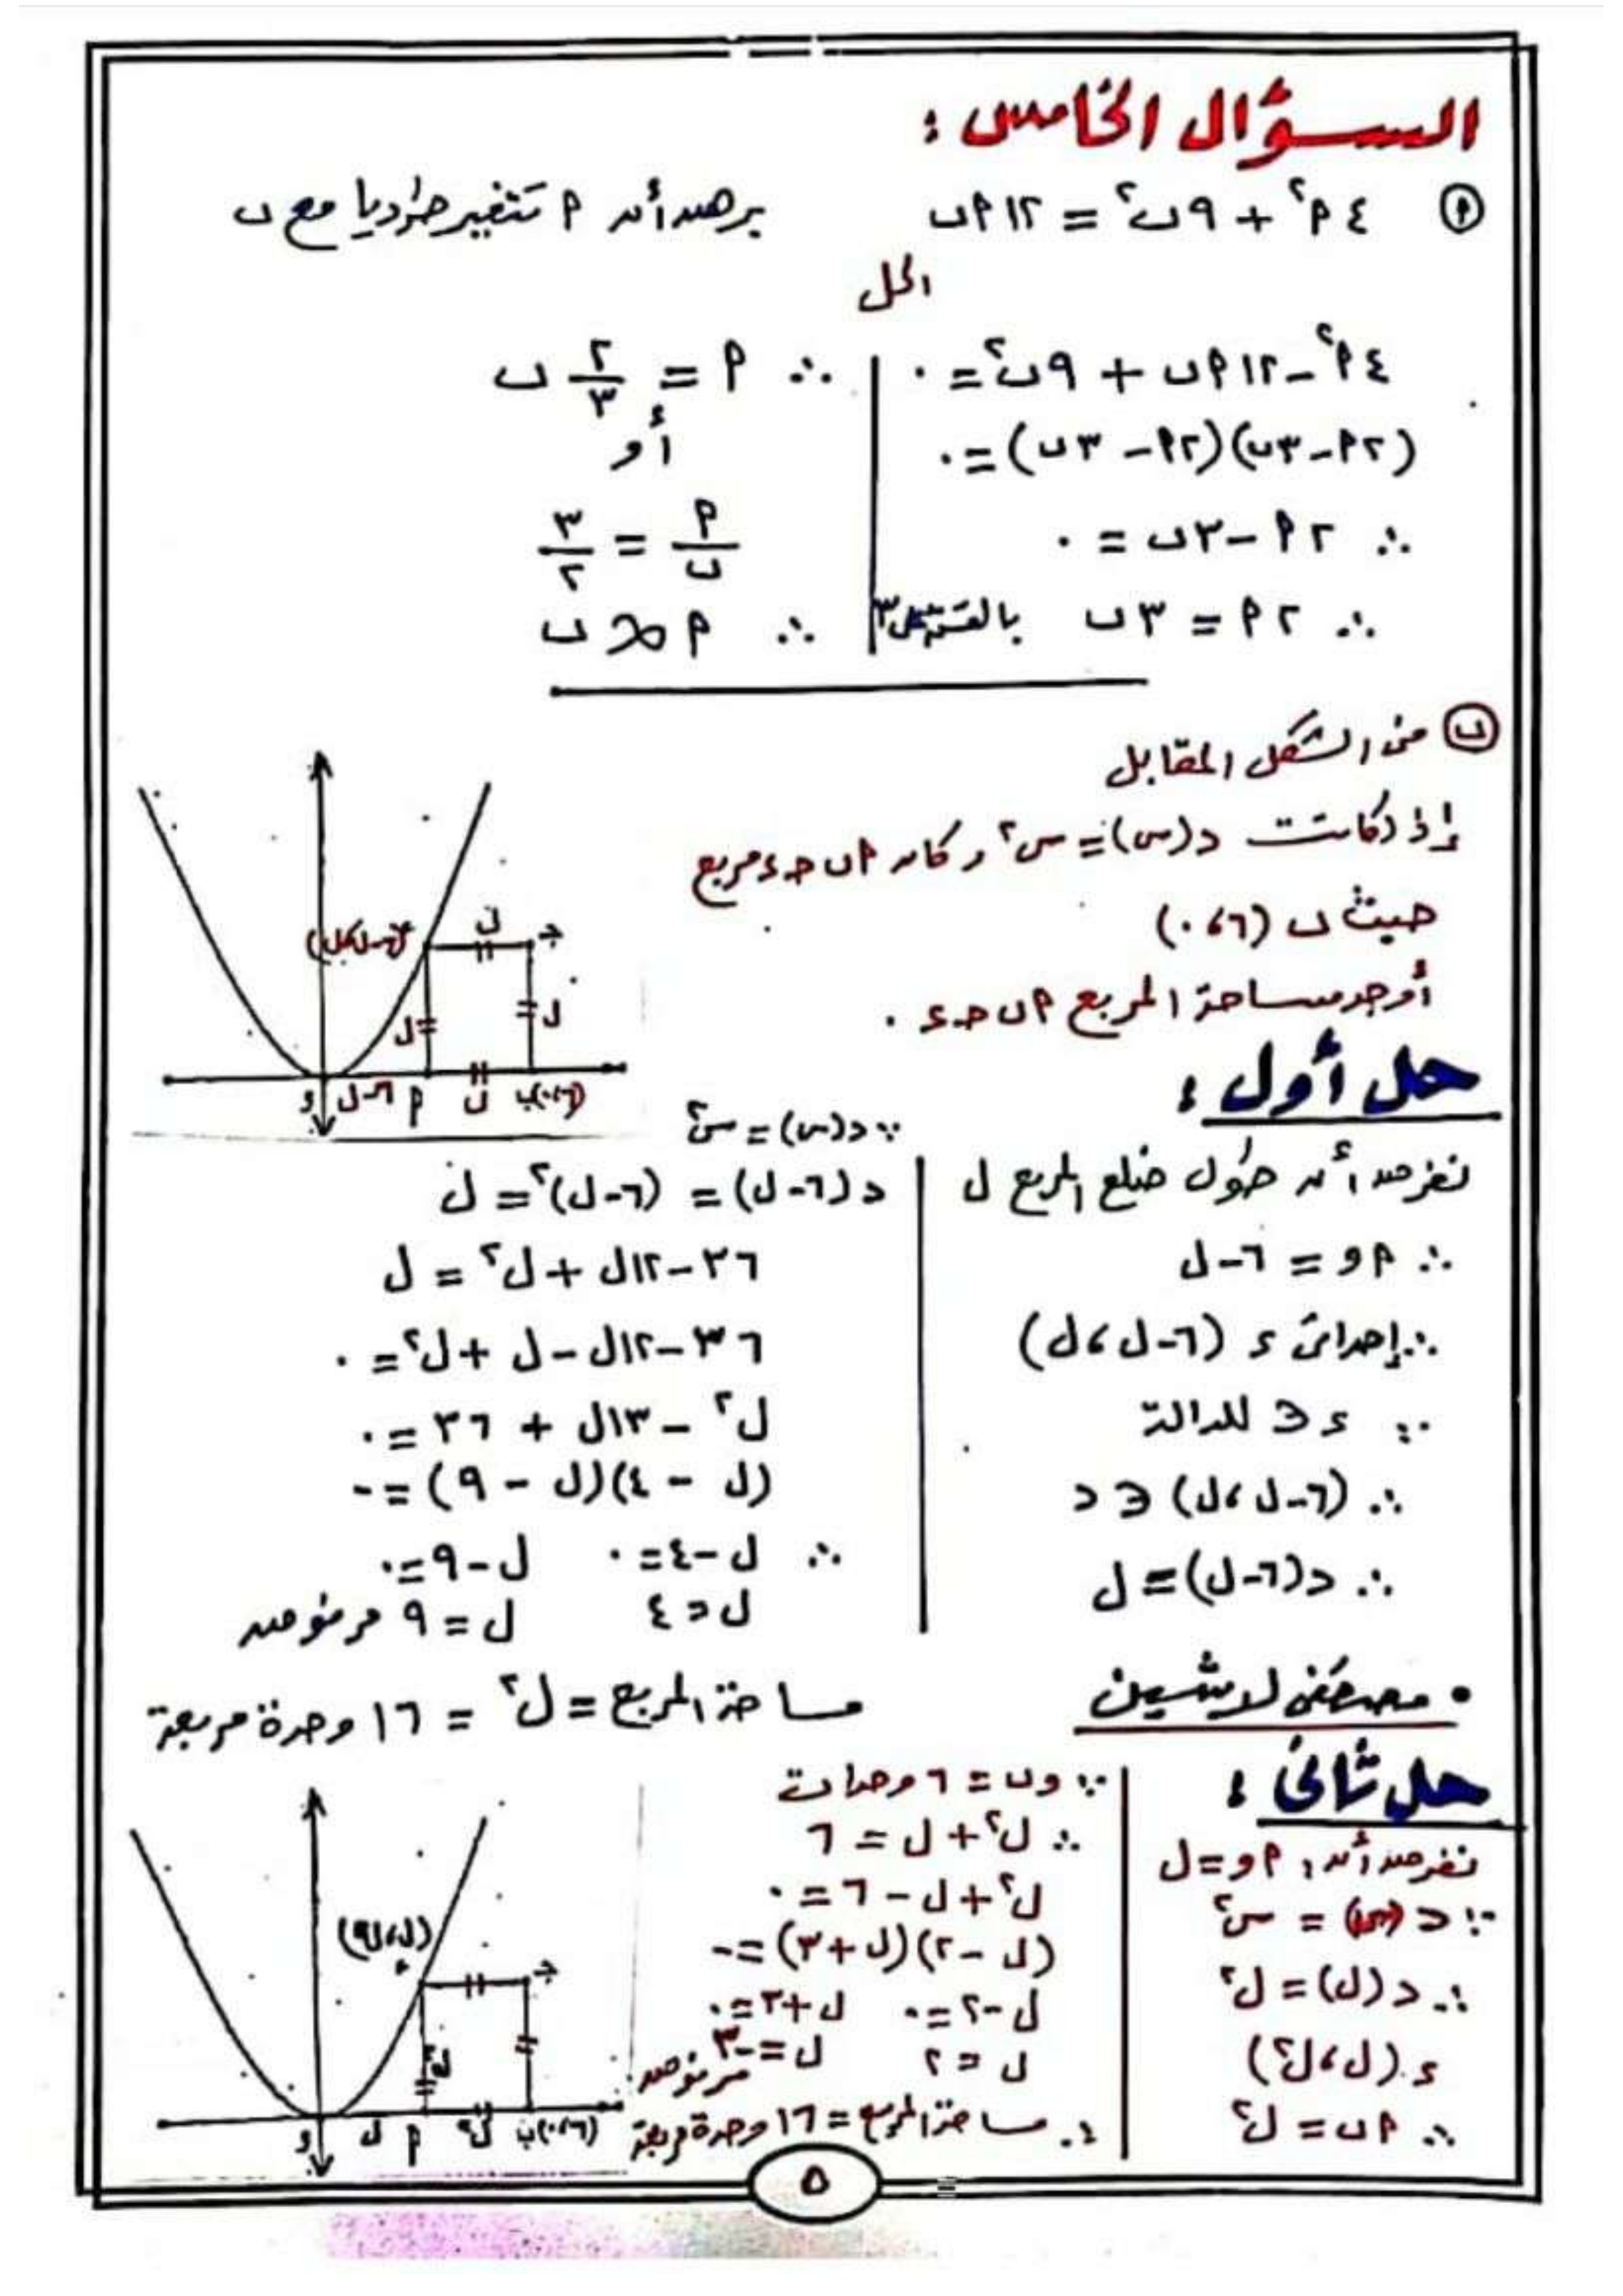 السؤال الخامس :
أ ٤ أ² + ٩ ب² = ١٢ أ ب برهن أن أ تتغير طرديا مع ب
الحل
٤ أ² - ١٢ أ ب + ٩ ب² = ٠
(٢ أ - ٣ ب)(٢ أ - ٣ ب) = ٠
∴ ٢ أ - ٣ ب = ٠
∴ ٢ أ = ٣ ب بالقسمة على ٣
∴ أ ٢/٣ = ب
أو
أ/ب = ٣/٢
∴ أ ∝ ب
ب من الشكل المقابل
إذا كانت د(س) = س² وكان أ ب ج د مربع
حيث ب (٦، ٠)
أوجد مساحة المربع أ ب ج د .
(٦-ل، ل)
ل
ج
ل
ل
و ٦-ل أ ل ب(٦، ٠)
حل أول :
نفرض أن طول ضلع المربع ل
∴ أ و = ٦ - ل
∴ إحداثى د (٦-ل، ل)
∵ د ∈ للدالة
∴ (٦-ل، ل) ∈ د
∴ د(٦-ل) = ل
∵ د(س) = س²
د(٦-ل) = (٦-ل)² = ل
٣٦ - ١٢ل + ل² = ل
٣٦ - ١٢ل - ل + ل² = ٠
ل² - ١٣ل + ٣٦ = ٠
(ل - ٤)(ل - ٩) = ٠
∴ ل - ٤ = ٠ ل - ٩ = ٠
ل = ٤ ل = ٩ مرفوض
مساحة المربع = ل² = ١٦ وحدة مربعة
• مصطفى لاشين
حل ثانى :
نفرض أن أ و = ل
∵ د(س) = س²
∴ د(ل) = ل²
د (ل، ل²)
∴ أ ب = ل²
∵ و ب = ٦ وحدات
∴ ل² + ل = ٦
ل² + ل - ٦ = ٠
(ل - ٢)(ل + ٣) = ٠
ل - ٢ = ٠ ل + ٣ = ٠
ل = ٢ ل = -٣
مرفوض
∴ مساحة المربع = ١٦ وحدة مربعة
(ل، ل²)
د
ج
ل²
و ل أ ل² ب(٦، ٠)
٥